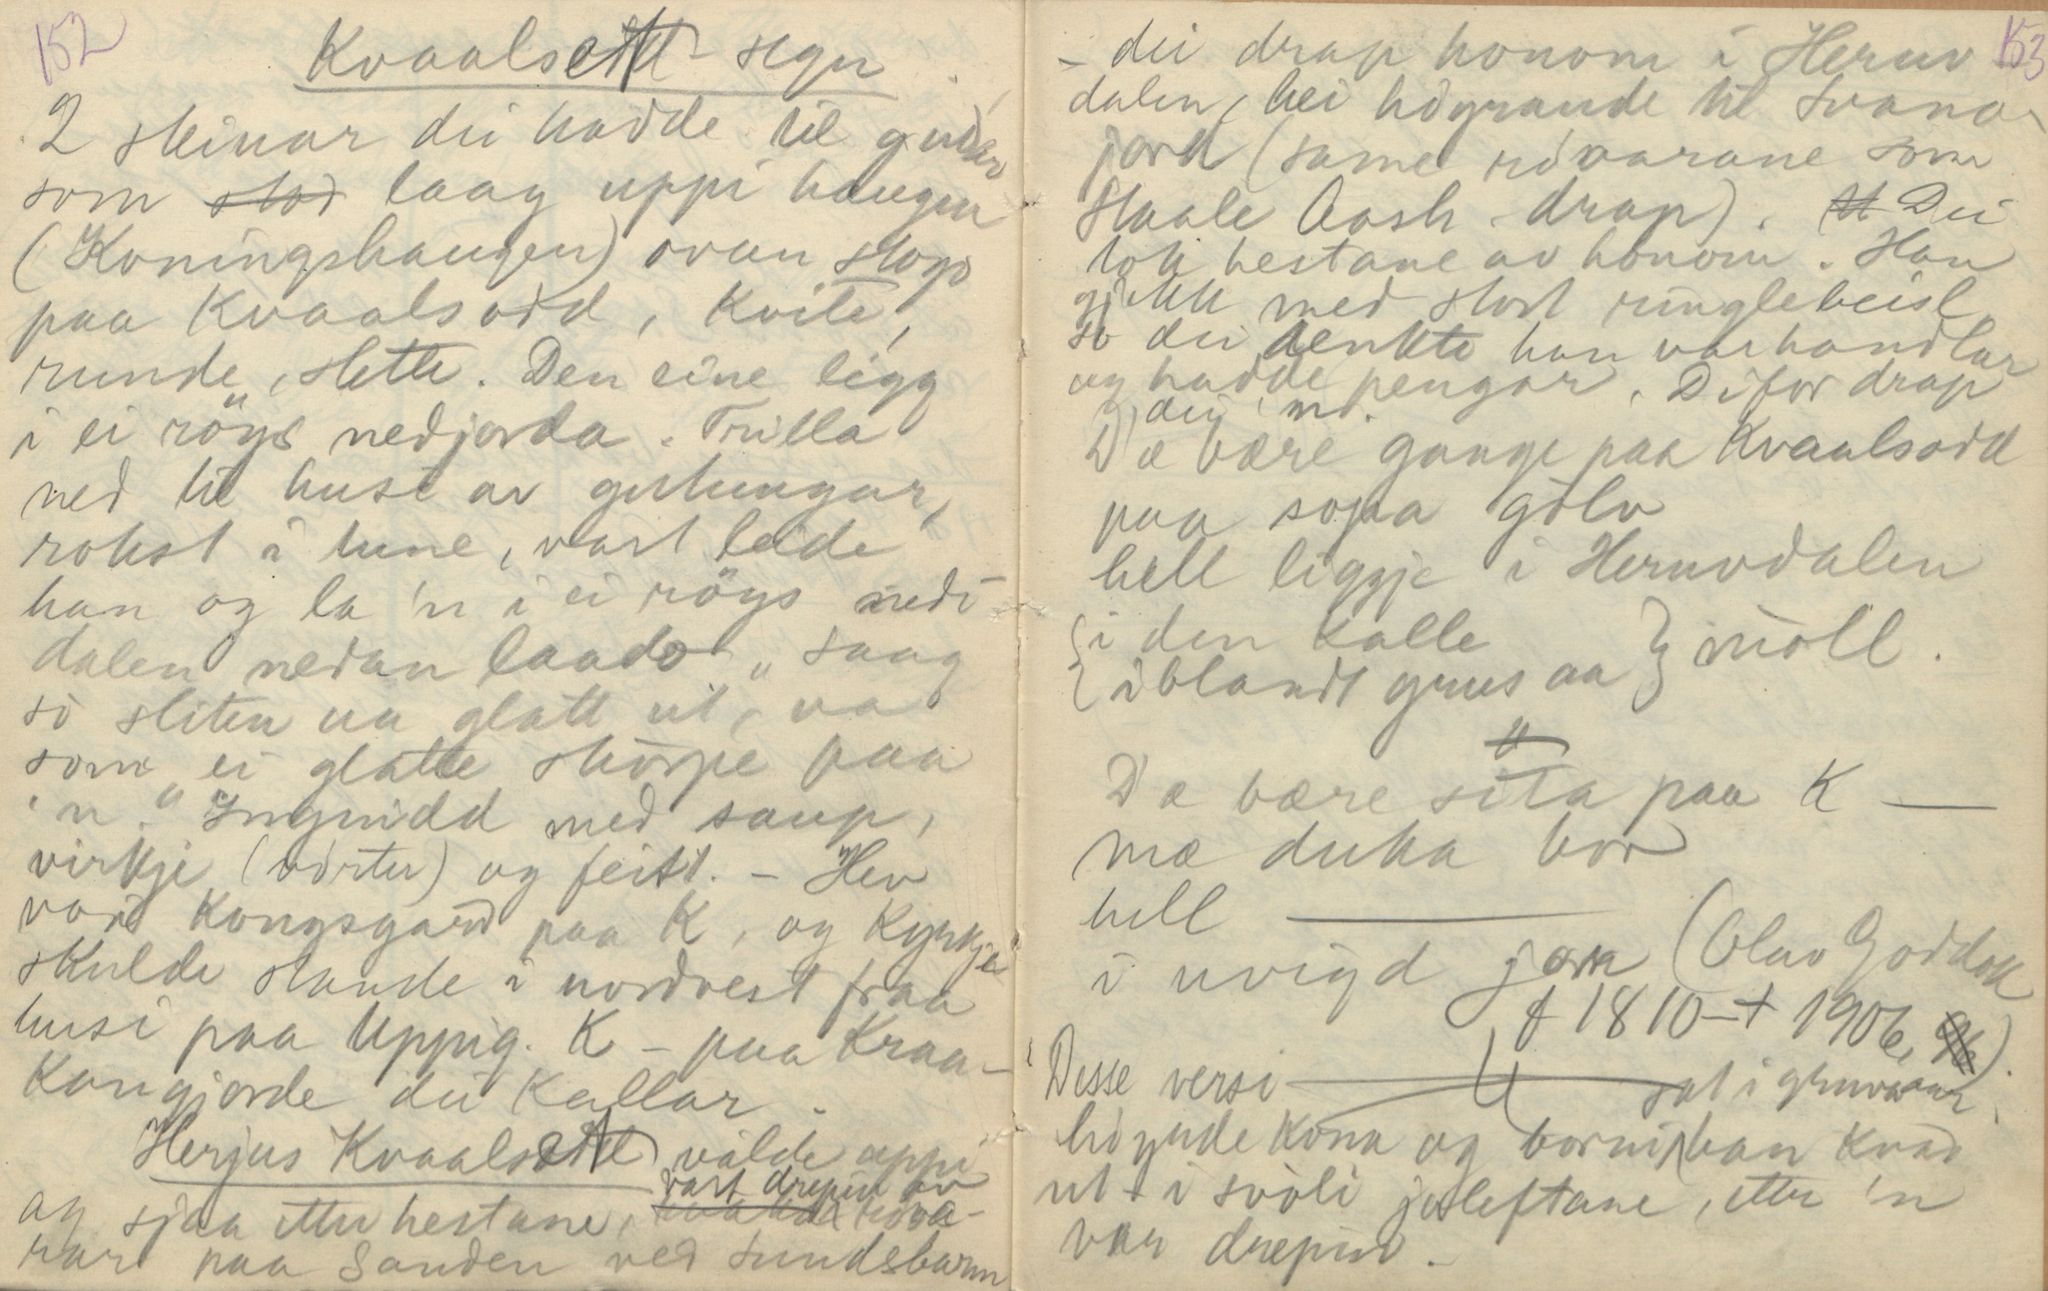 152
Kvaalsett-segn
2 steinar dei hadde til gudar
som stod laag uppi haugen
(Koningshaugen) ovan stogo
paa Kvaalsodd, kvite,
runde, slette. Den eine ligg
i ei röys nedjorda. Trilla
ned til husi av gutungar,
rokst i tune, vart leide
han og la 'n i ei röys nedi
dalen nedan laado " saag
so sliten ut aa glatt ut, va
som ei glatte skorpe paa
'n." Inngnidd med saup,
virkje (vörter) og feitt. - Hev
vori Kongsgard paa K, og kyrkje
skulde stande i nordvest fraa
husi paa Uppig. K - paa Kraa-
kangjorde dei kallar.
Herjus Kvaalsett vilde uppi
vart drepin av
og sjaa etter hestane, röva-
rar paa Sanden ved Sundsbarm
153
- dei drap honom i Heruv
dalen, hei högrande til Svana
jord (same rövarane som
Staale Aash drap). Dei
tok hestane av honom. Han
gjekk med stort ringlebeisl
so dei tenkte han var handlar
og hadde pengar. Difor drap
dei 'n.
Dæ bære gange paa Kvaalsodd
paa sopa golv
hell liggje i Heruvdalen
{ i den kalle } moll.
{ iblandt grus aa }
"
Dæ bære sita paa K —
mæ duka bor
hell ———
i uvigd jorn (Olav Goddok
f 1810 - + 1906.)
Desse versi ——— sat i gruvaar
högude kona og borni han kvad
ut i svoli joleftane, etter 'n
var drepin.